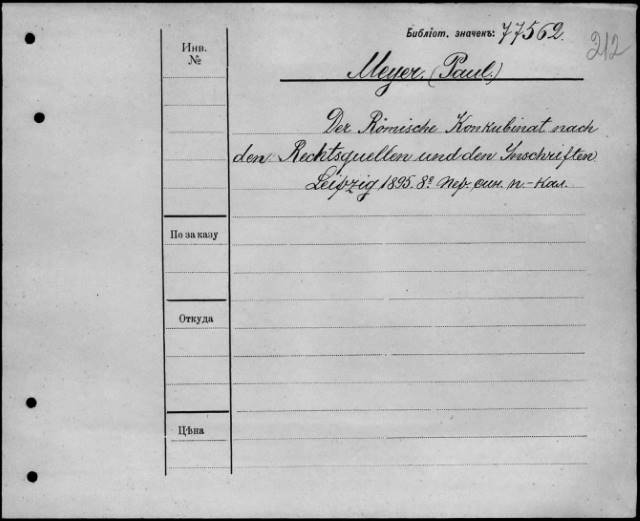 Библіот. значекъ: 77562.
212
Инв.
№
Meyer. (Paul.)
Der Römische Konkubinat nach
den Rechtsquellen und den Inschriften
Leipzig 1895. 8º пер. син. п.-кал.
По заказу
Откуда
Цѣна